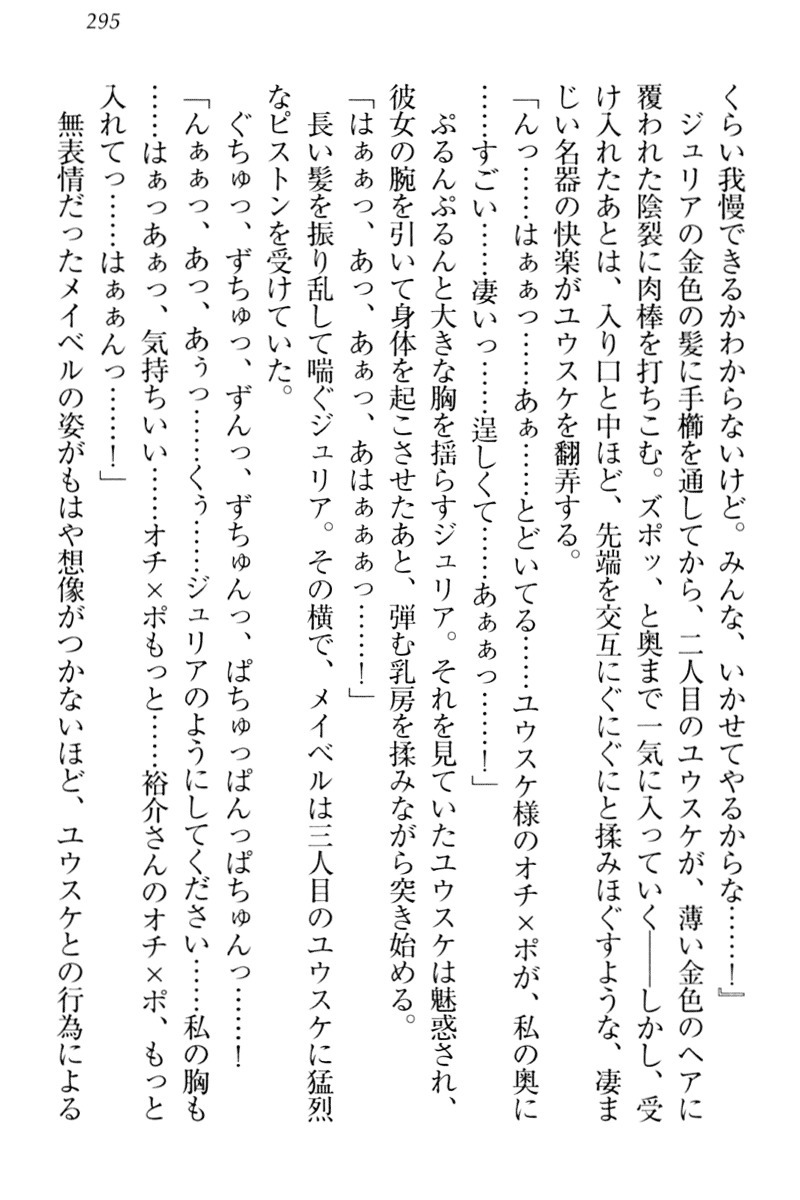 295
くらい我慢できるかわからないけど。みんな、いかせてやるからな……！』
　ジュリアの金色の髪に手櫛を通してから、二人目のユウスケが、薄い金色のヘアに
覆われた陰裂に肉棒を打ちこむ。ズポッ、と奥まで一気に入っていく――しかし、受
け入れたあとは、入り口と中ほど、先端を交互にぐにぐにと揉みほぐすような、凄ま
じい名器の快楽がユウスケを翻弄する。
「んっ……はぁぁっ……あぁ……とどいてる……ユウスケ様のオチ×ポが、私の奥に
……すごい……凄いっ……逞しくて……あぁぁっ……！」
　ぷるんぷるんと大きな胸を揺らすジュリア。それを見ていたユウスケは魅惑され、
彼女の腕を引いて身体を起こさせたあと、弾む乳房を揉みながら突き始める。
「はぁぁっ、あっ、あぁっ、あはぁぁぁっ……！」
　長い髪を振り乱して喘ぐジュリア。その横で、メイベルは三人目のユウスケに猛烈
なピストンを受けていた。
　ぐちゅっ、ずちゅっ、ずんっ、ずちゅんっ、ぱちゅっぱんっぱちゅんっ……！
「んぁぁっ、あっ、あぅっ……くぅ……ジュリアのようにしてください……私の胸も
……はぁっあぁっ、気持ちいい……オチ×ポもっと……裕介さんのオチ×ポ、もっと
入れてっ……はぁぁんっ……！」
　無表情だったメイベルの姿がもはや想像がつかないほど、ユウスケとの行為による